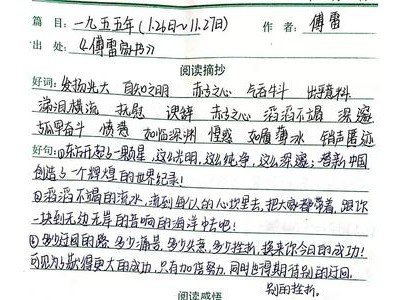 篇 目：一九五五年（1.26日～11.27日） 作 者：傅雷
出 处：《傅雷家书》
阅读摘抄
好词：发扬光大 自知之明 赤子之心 气吞斗牛 出乎意料
涕泪横流 抚慰 谅解 赤子之心 滔滔不竭 深邃
孤军奋斗 愤懑 如临深渊 惶惑 如履薄冰 销声匿迹
好句：①东方升起了一颗星，这么光明，这么纯净，这么深邃；替新中国
创造了一个辉煌的世界纪录！
②滔滔不竭的流水，流到每个人的心坎里去，把大家都带着，跟你
一块到无边无岸的音响的海洋中去吧！
③多少迂回的路，多少痛苦，多少失意，多少挫折，换来你今日的成功！
可见为了获得更大的成功，只有加倍努力，同时也得期待别的迂回，
别的挫折。
阅读感悟